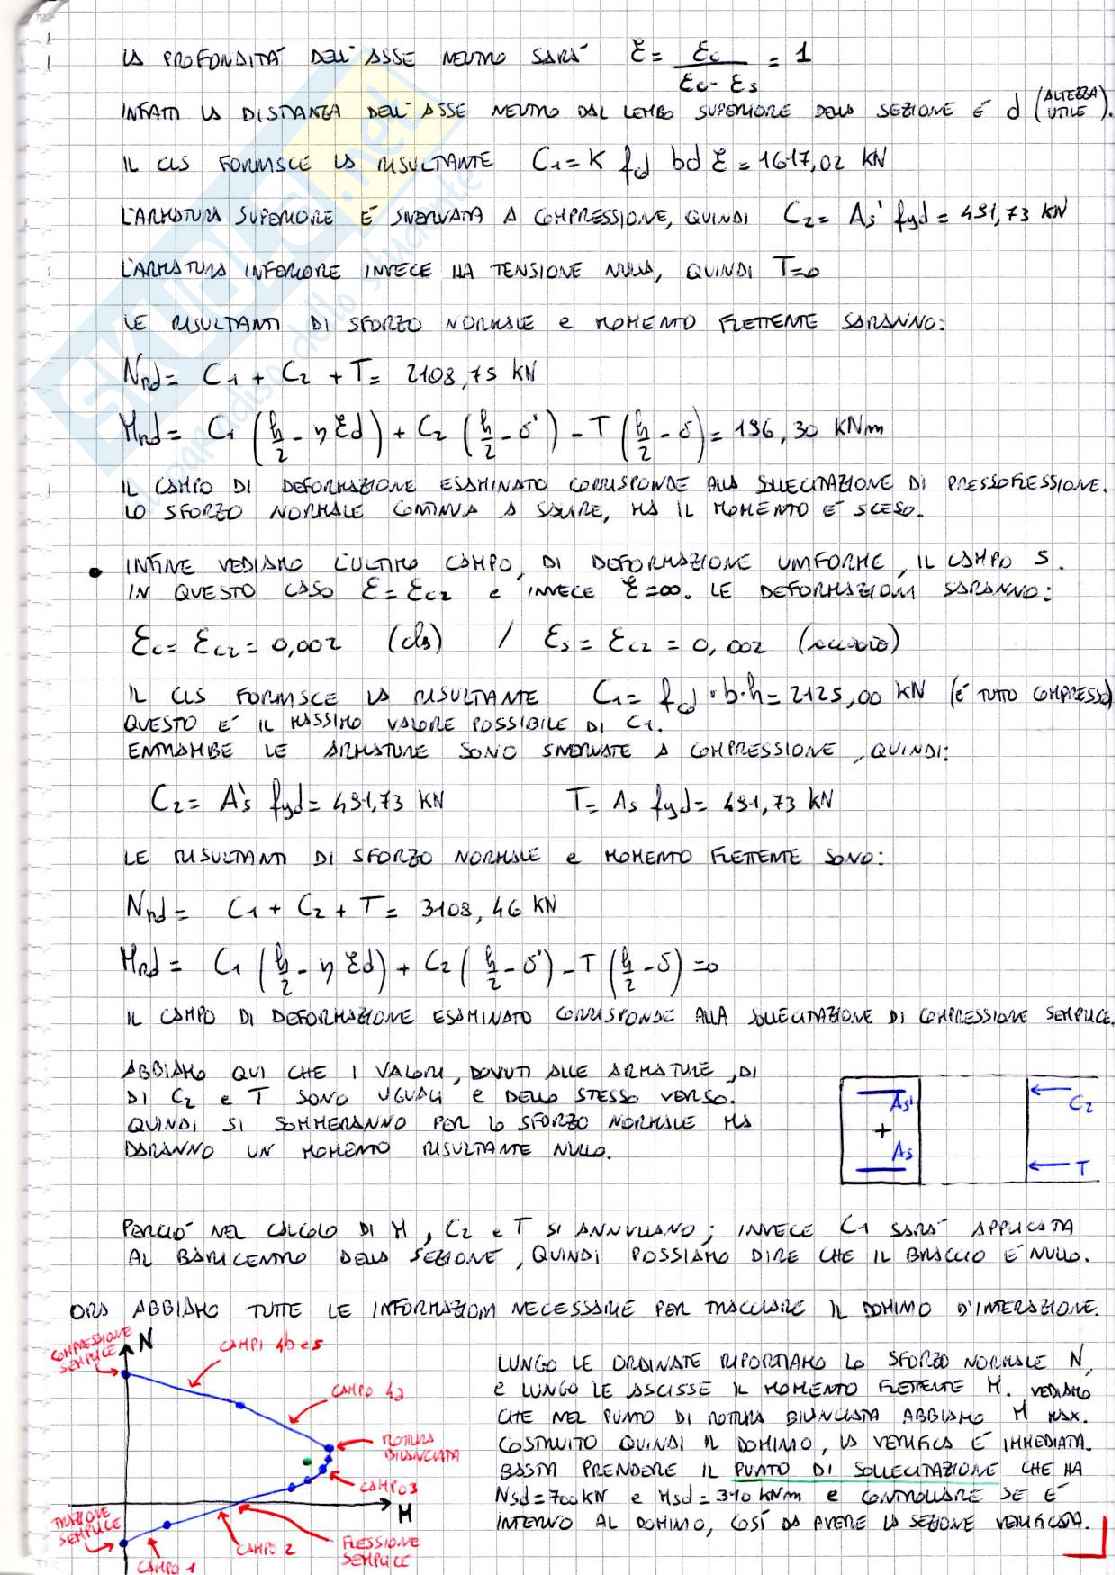 LA PROFONDITÀ DELL'ASSE NEUTRO SARÀ ξ = εc / (εc - εs) = 1
INFATTI LA DISTANZA DELL'ASSE NEUTRO DAL LEMBO SUPERIORE DELLA SEZIONE È d (ALTEZZA UTILE).
IL CLS FORNISCE LA RISULTANTE C1 = K fcd bd ξ = 1617,02 kN
L'ARMATURA SUPERIORE È SNERVATA A COMPRESSIONE, QUINDI C2 = As' fyd = 491,73 kN
L'ARMATURA INFERIORE INVECE HA TENSIONE NULLA, QUINDI T=0
LE RISULTANTI DI SFORZO NORMALE e MOMENTO FLETTENTE SARANNO:
Nrd = C1 + C2 + T = 2108,75 kN
Mrd = C1 (h/2 - η ξd) + C2 (h/2 - δ') - T (h/2 - δ) = 196,30 kNm
IL CAMPO DI DEFORMAZIONE ESAMINATO CORRISPONDE ALLA SOLLECITAZIONE DI PRESSOFLESSIONE.
LO SFORZO NORMALE CONTINUA A SALIRE, MA IL MOMENTO È SCESO.
• INFINE VEDIAMO L'ULTIMO CAMPO, DI DEFORMAZIONE UNIFORME, IL CAMPO 5.
IN QUESTO CASO ε = εc2 e INVECE ξ=∞. LE DEFORMAZIONI SARANNO:
εc = εc2 = 0,002 (cls) / εs = εc2 = 0,002 (acciaio)
IL CLS FORNISCE LA RISULTANTE C1 = fcd · b · h = 2125,00 kN (È TUTTO COMPRESSO)
QUESTO È IL MASSIMO VALORE POSSIBILE DI C1.
ENTRAMBE LE ARMATURE SONO SNERVATE A COMPRESSIONE, QUINDI:
C2 = A's fyd = 491,73 kN T = As fyd = 491,73 kN
LE RISULTANTI DI SFORZO NORMALE e MOMENTO FLETTENTE SONO:
Nrd = C1 + C2 + T = 3108,46 kN
Mrd = C1 (h/2 - η ξd) + C2 (h/2 - δ') - T (h/2 - δ) = 0
IL CAMPO DI DEFORMAZIONE ESAMINATO CORRISPONDE ALLA SOLLECITAZIONE DI COMPRESSIONE SEMPLICE.
ABBIAMO QUI CHE I VALORI, DOVUTI ALLE ARMATURE, DI
DI C2 e T SONO UGUALI E DELLO STESSO VERSO.
QUINDI SI SOMMERANNO PER LO SFORZO NORMALE MA
DARANNO UN MOMENTO RISULTANTE NULLO.
As'
+
As
C2
T
PERCIÒ NEL CALCOLO DI M, C2 e T SI ANNULLANO; INVECE C1 SARÀ APPLICATA
AL BARICENTRO DELLA SEZIONE, QUINDI POSSIAMO DIRE CHE IL BRACCIO È NULLO.
ORA ABBIAMO TUTTE LE INFORMAZIONI NECESSARIE PER TRACCIARE IL DOMINIO D'INTERAZIONE.
COMPRESSIONE
SEMPLICE
N
CAMPI 4b e 5
CAMPO 4a
ROTTURA
BILANCIATA
CAMPO 3
M
TRAZIONE
SEMPLICE
CAMPO 1
CAMPO 2
FLESSIONE
SEMPLICE
LUNGO LE ORDINATE RIPORTIAMO LO SFORZO NORMALE N,
E LUNGO LE ASCISSE IL MOMENTO FLETTENTE M. VEDIAMO
CHE NEL PUNTO DI ROTTURA BILANCIATA ABBIAMO M MAX.
COSTRUITO QUINDI IL DOMINIO, LA VERIFICA È IMMEDIATA.
BASTA PRENDERE IL PUNTO DI SOLLECITAZIONE CHE HA
Nsd = 700kN e Msd = 310 kNm e CONTROLLARE SE È
INTERNO AL DOMINIO, COSÌ DA AVERE LA SEZIONE VERIFICATA.